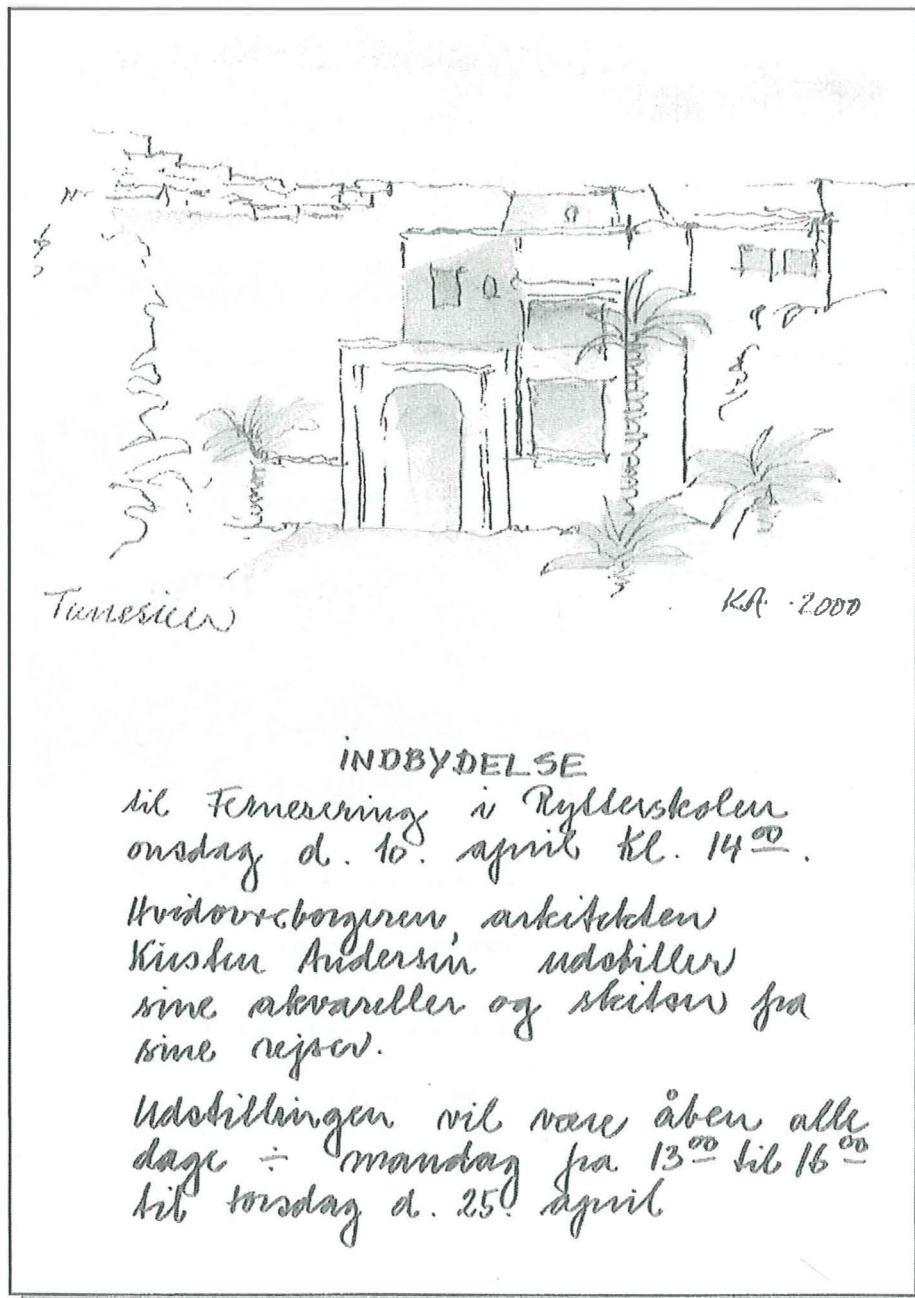 Tunesien
KA. 2000
INDBYDELSE
til Fernesering i Rytterskolen
onsdag d. 10. april kl. 14⁰⁰.
Hvidovreborgeren, arkitekten
Kirsten Andersen udstiller
sine akvareller og skitser fra
sine rejser.
Udstillingen vil være åben alle
dage ÷ mandag fra 13⁰⁰ til 16⁰⁰
til torsdag d. 25. april